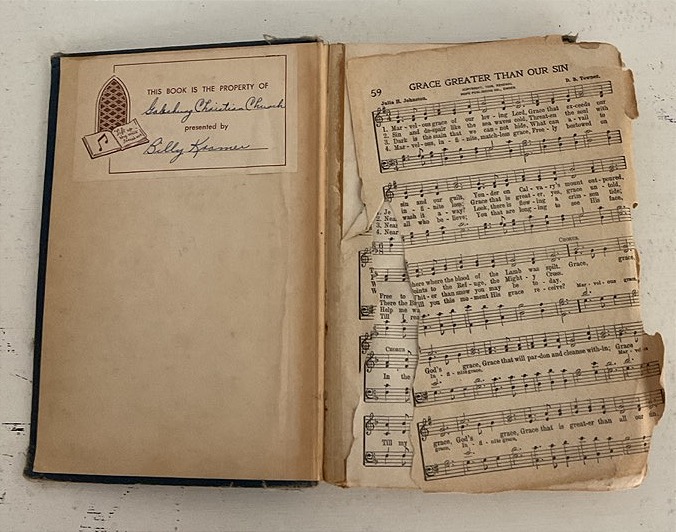 THIS BOOK IS THE PROPERTY OF
Galesburg Christian Church
presented by
Billy Kramer
59
GRACE GREATER THAN OUR SIN
Julia H. Johnston.
D. B. Towner.
1. Mar - vel - ous grace of our lov - ing Lord, Grace that ex-ceeds our
2. Sin and de-spair like the sea waves cold, Threat-en the soul with
3. Dark is the stain that we can - not hide, What can a - vail
4. Mar - vel - ous, in - fi - nite, match-less grace, Free - ly bestowed on
sin and our guilt, Yon-der on Cal - va - ry's mount out-poured,
in - fi - nite loss; Grace that is great-er, yes, grace un - told,
wash it a - way? Look, there is flow - ing a crim - son tide;
all who be - lieve; You that are long - ing to see His face,
CHORUS
here where the blood of the Lamb was spilt. Grace, grace,
oints to the Ref - uge, the Might - y Cross.
er than snow you may be to - day.
ill you this mo-ment His grace re - ceive? Mar - vel - ous grace,
Free to
Help me
Till
CHORUS
In the
God's grace, Grace that will par-don and cleanse with-in; Grace
In - fi - nite grace,
Till my
grace, God's grace, Grace that is great-er than all our
grace, In - fi - nite grace,